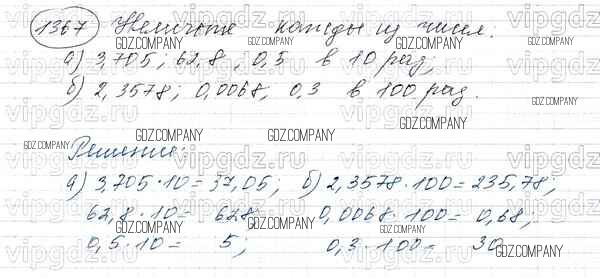 1367 Увеличьте каждое из чисел.
а) 3,705; 62,8; 0,5 в 10 раз;
б) 2,3578; 0,0068; 0,3 в 100 раз.
Решение:
а) 3,705 · 10 = 37,05; б) 2,3578 · 100 = 235,78;
62,8 · 10 = 628; 0,0068 · 100 = 0,68;
0,5 · 10 = 5; 0,3 · 100 = 30